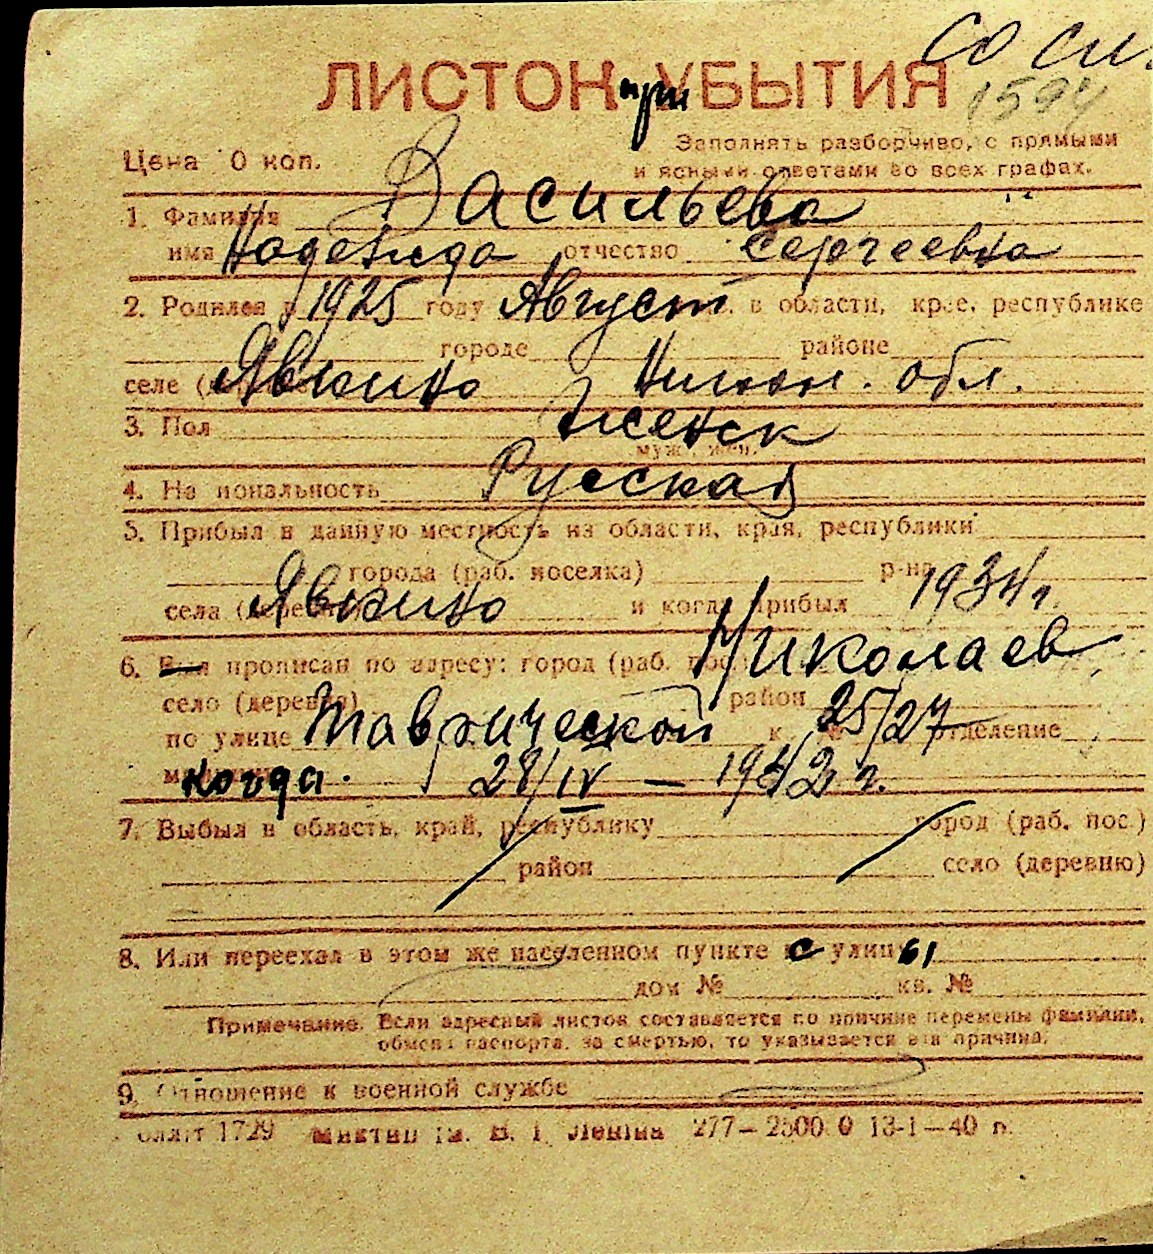 СО СИ.
ЛИСТОК при УБЫТИЯ 1594
Цена 0 коп. Заполнять разборчиво, с прямыми
и ясными ответами во всех графах.
1. Фамилия Васильева
имя Надежда отчество Сергеевна
2. Родился в 1925 году Август в области, крае, республике
городе районе
селе Явкино Никол. обл.
3. Пол женск
муж. жен.
4. Национальность Русская
5. Прибыл в данную местность из области, края, республики
города (раб. поселка) р-на
села (деревни) Явкино и когда прибыл 1934 г.
6. Был прописан по адресу: город (раб. пос. Николаев
село (деревня) район
по улице Таврической к. № 25/27 отделение
когда. 28/IV — 1942 г.
7. Выбыл в область, край, республику город (раб. пос.)
район село (деревню)
8. Или переехал в этом же населенном пункте с улицы
дом № кв. №
Примечание. Если адресный листок составляется по причине перемены фамилии,
обмена паспорта, за смертью, то указывается эта причина.
9. Отношение к военной службе
1729 Ленiна 277—2500 0 13-1—40 г.